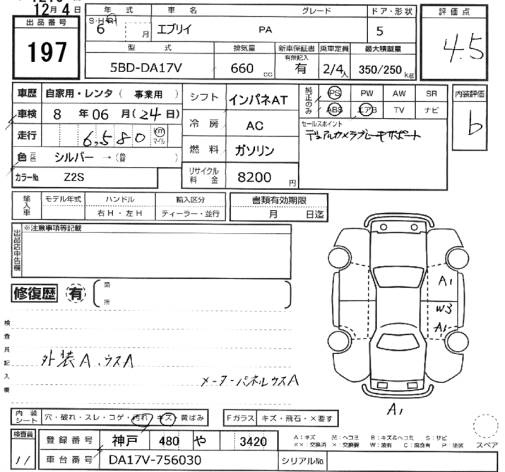 12月4日
出品番号
197
年式
車名
グレード
ドア・形状
評価点
S・H・R
6 年 月
エブリイ
PA
5
4.5
型式
排気量
新車保証書
有無記入
乗車定員
最大積載量
5BD-DA17V
660 cc
有
2/4人
350/250 kg
車歴
自家用・レンタ(事業用)
シフト
インパネAT
純正のみ
PS PW AW SR
ABS エアB TV ナビ
内装評価
b
車検
8年06月(24日)
冷房
AC
セールスポイント
デュアルカメラブレーキサポート
走行
6,580
km
マイル
燃料
ガソリン
色
シルバー→(替)
カラーNo
Z2S
リサイクル料金
8200円
輸入車
モデル年式
ハンドル
右H・左H
輸入区分
ディーラー・並行
書類有効期限
月 日迄
出品店申告欄
※注意事項等記載
修復歴
有
箇所
検査員記入欄
外装A、ウスA
メーターパネルウスA
A1
W3
A1
A1
内装シート
穴・破れ・スレ・コゲ・汚れ・キズ・黄ばみ
Fガラス
キズ・飛石・×要す
検査員
11
登録番号
神戸 480 や 3420
車台番号
DA17V-756030
シリアルNo
スペア